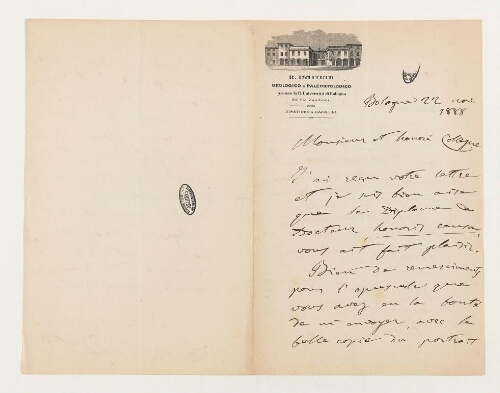 R. ISTITUTO
GEOLOGICO E PALEONTOLOGICO
presso la R. Università di Bologna
Bologne 22 nov.
1888
Monsieur et honoré Collegue
J'ai reçu votre lettre
et je suis bien aise
que le Diplome de
Docteur honoris causa,
vous ait fait plaisir.
Bien de remerciments
pour l'opuscule que
vous avez eu la bonté
de m'envoyer, avec la
belle copie du portrait